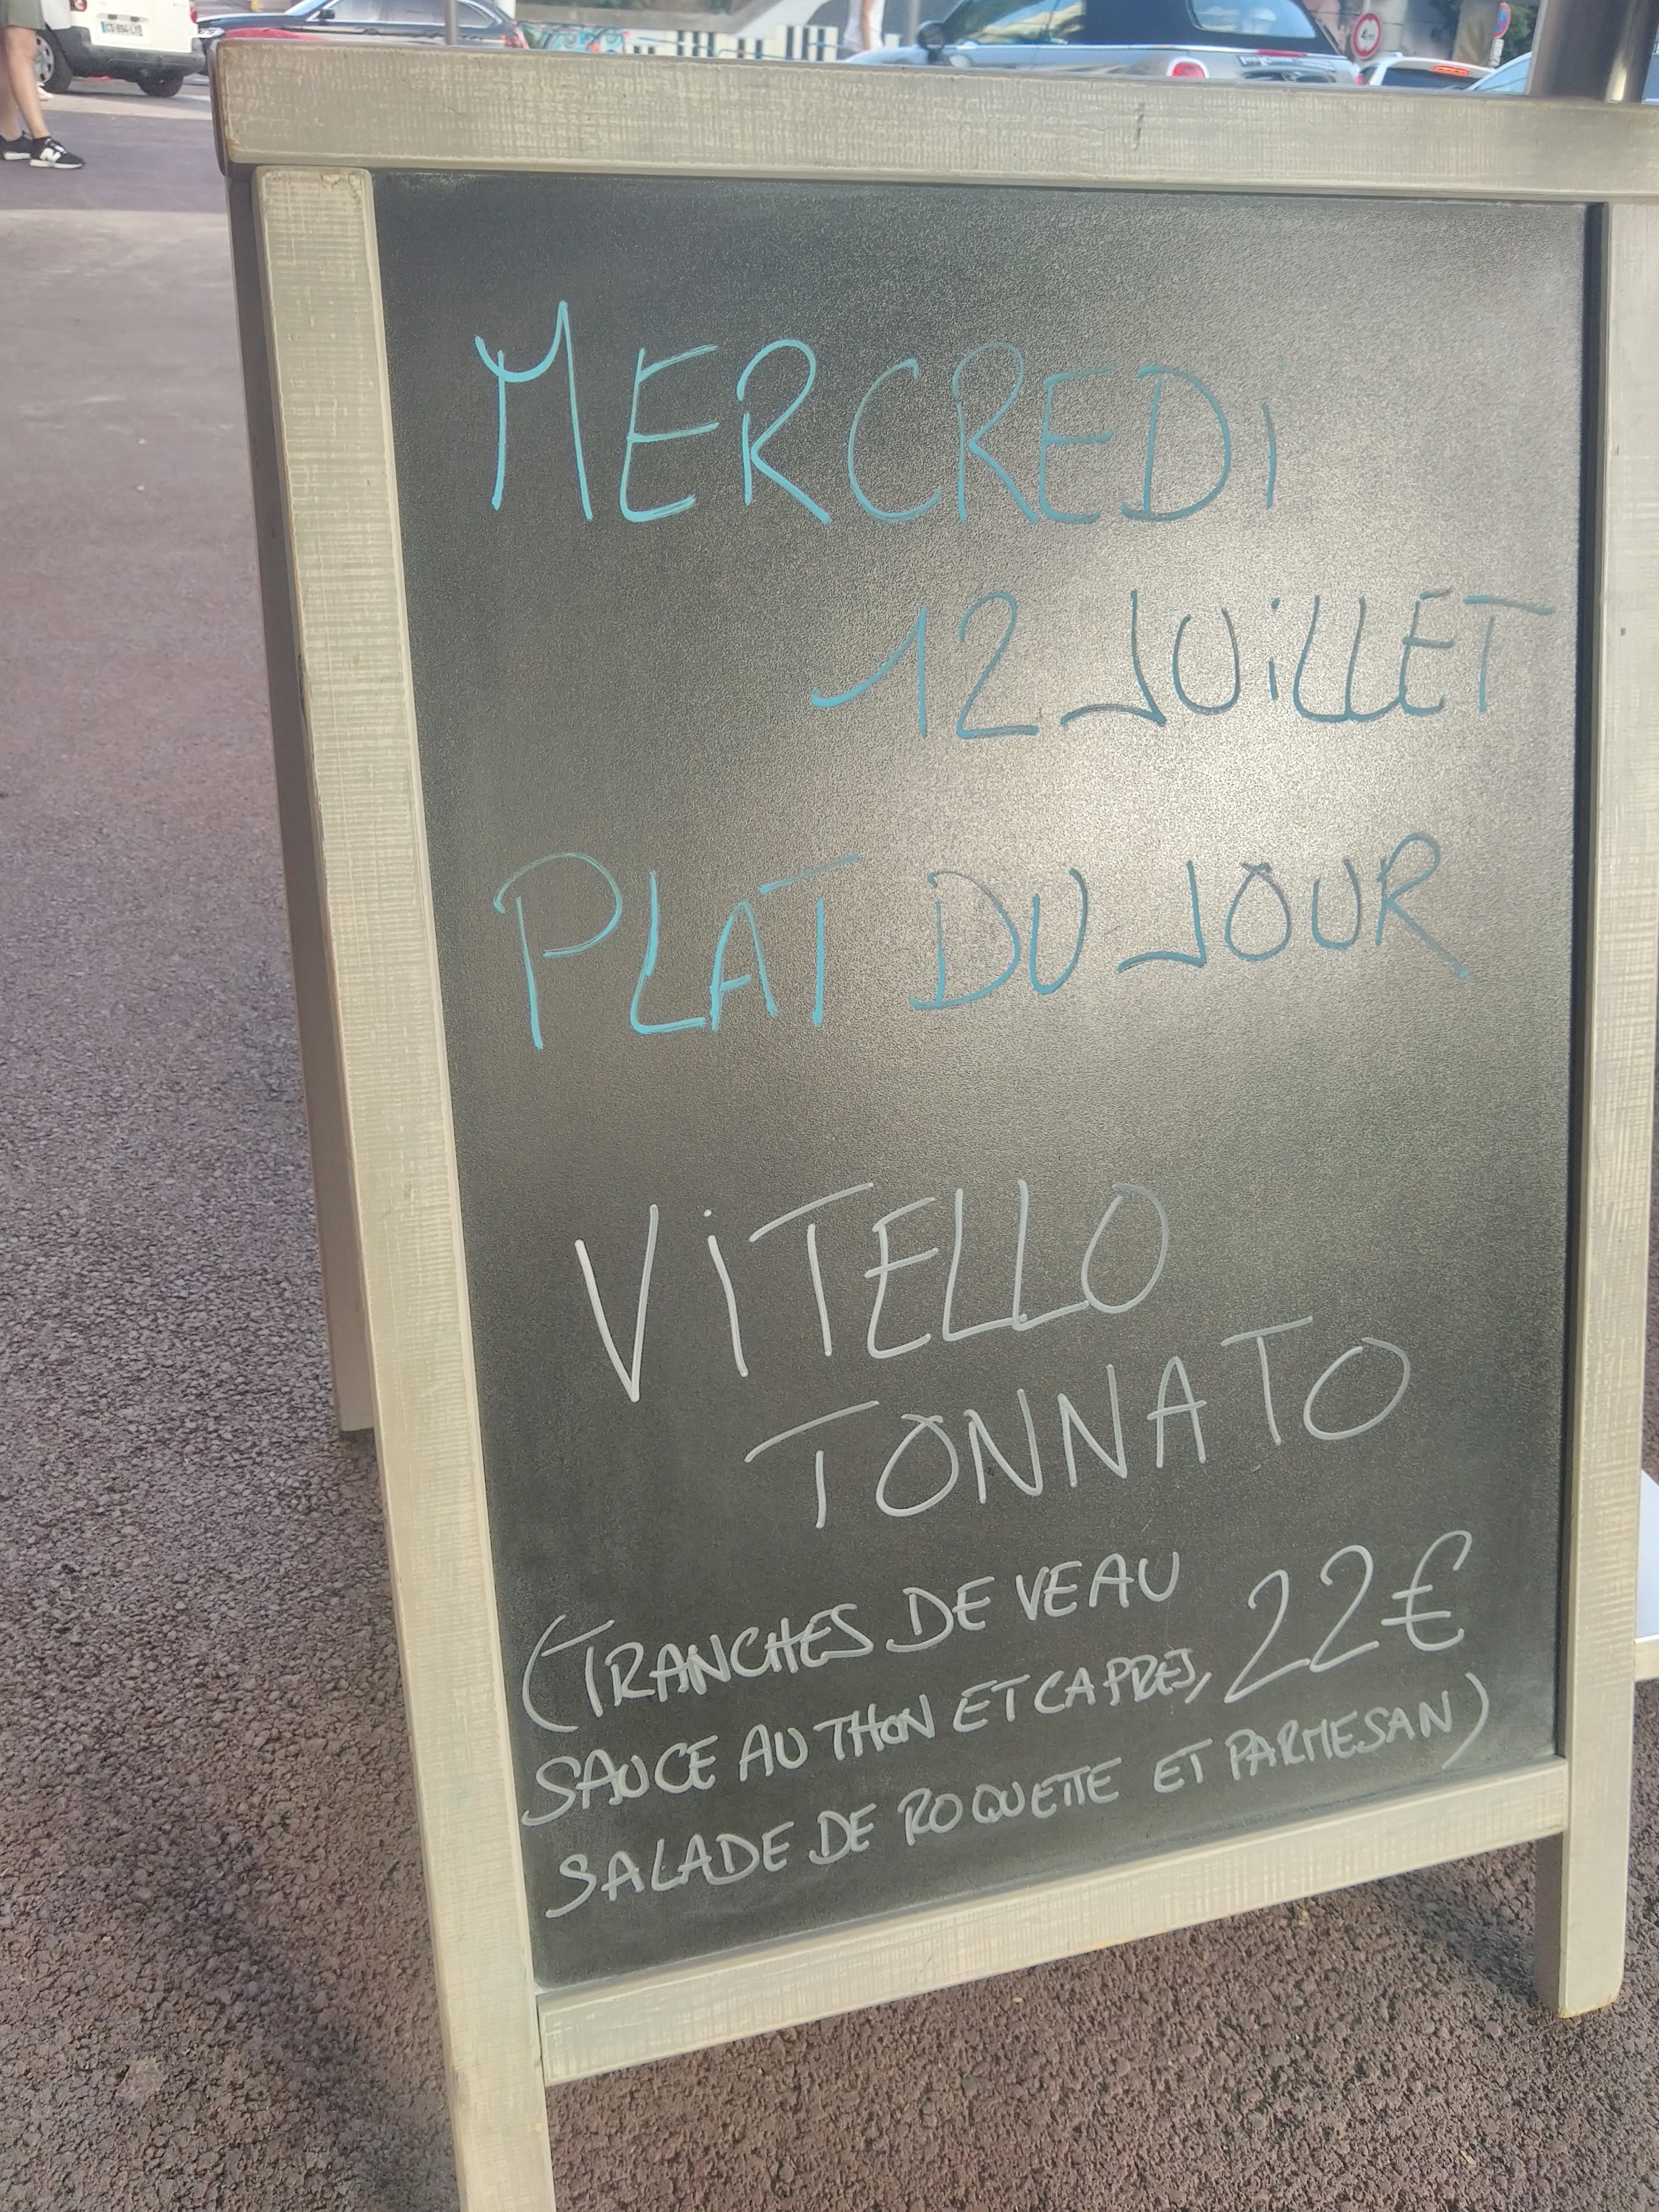 MERCREDi
12 JUiLLET
PLAT DU JOUR
ViTELLO
TONNATO
(TRANCHES DE VEAU
SAUCE AU THON ET CAPRES, 22€
SALADE DE ROQUETTE ET PARMESAN)